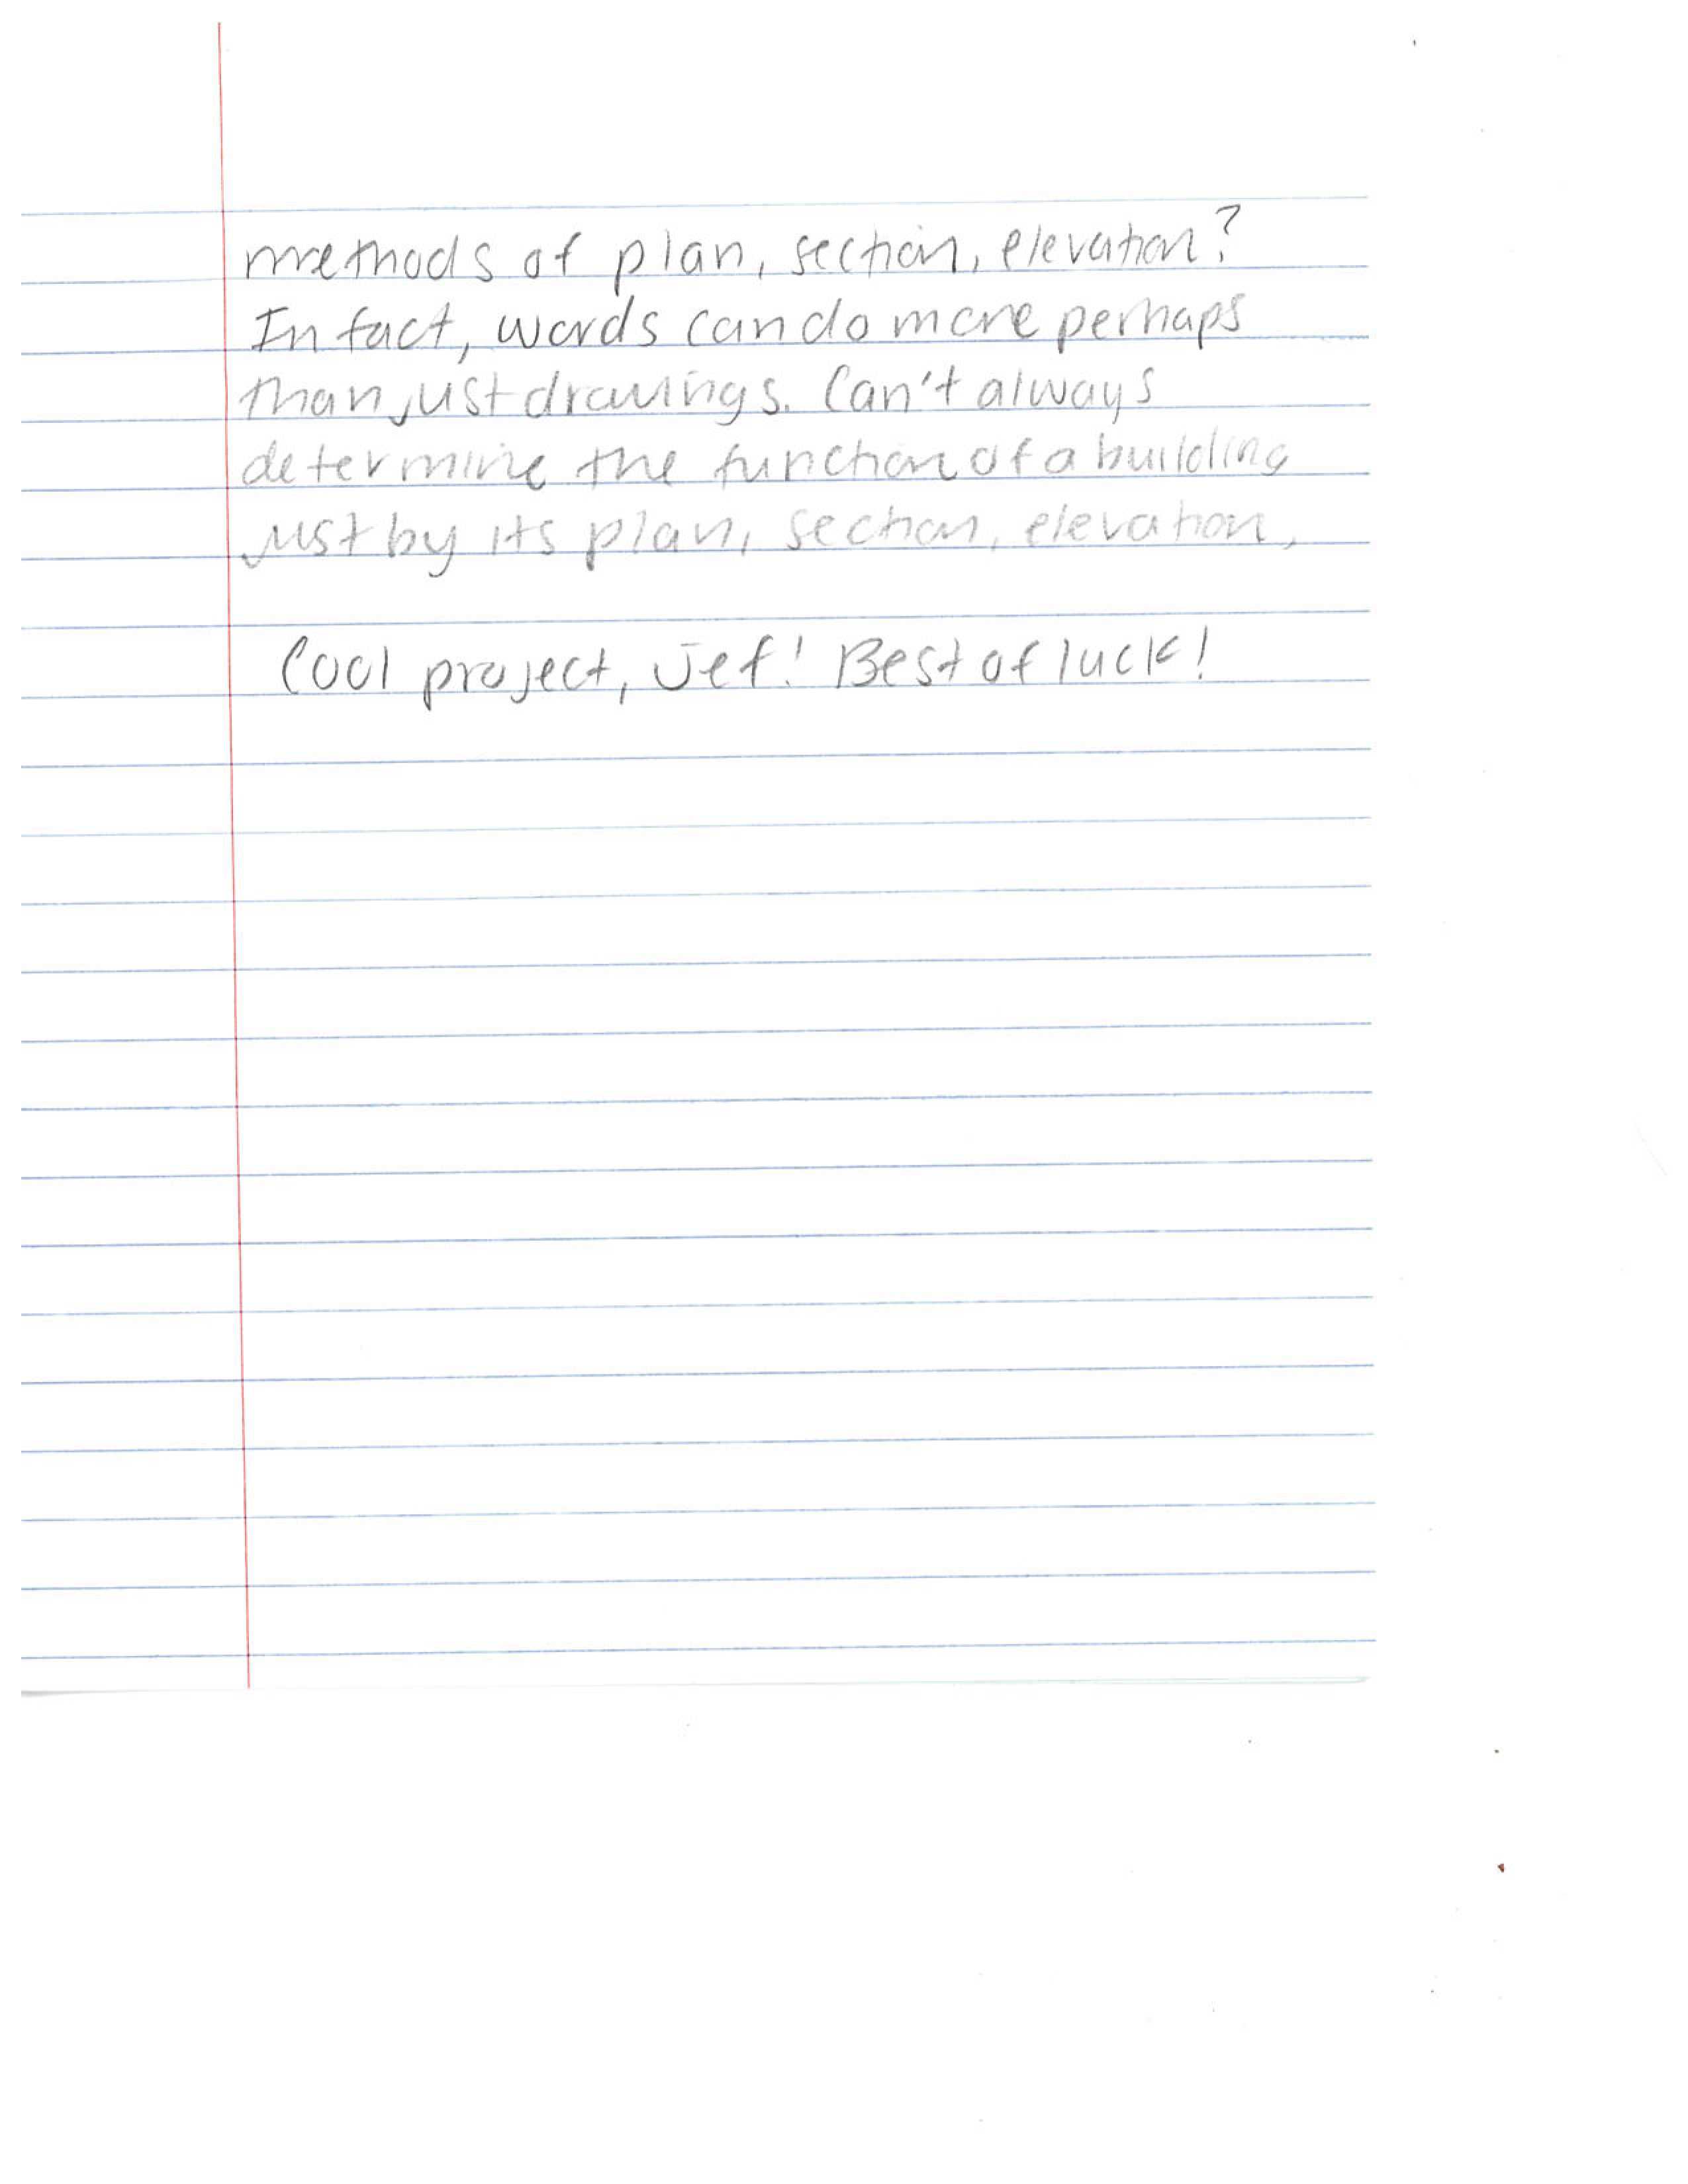 methods of plan, section, elevation?
In fact, words can do more perhaps
than just drawings. Can't always
determine the function of a building
just by its plan, section, elevation,
Cool project, Jef! Best of luck!